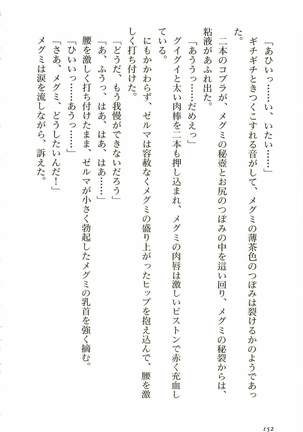 「あひいっ……い、いたい……」
ギチギチときつくこすれる音がして、メグミの薄茶色のつぼみは裂けるかのようであっ
た。
二本のコブラが、メグミの秘壺とお尻のつぼみの中を這い回り、メグミの秘裂からは、
粘液があふれ出た。
「あううっ……だめえっ」
グイグイと太い肉棒を二本も押し込まれ、メグミの肉唇は激しいピストンで赤く充血し
にもかかわらず、ゼルマは容赦なくメグミの盛り上がったヒップを抱え込んで、腰を激
しく打ち付けた。
「どうだ、もう我慢ができないだろう」
「あ、ふうっ、はあ、はあ、はあ」
腰を激しく打ち付けたまま、ゼルマが小さく勃起したメグミの乳首を強く摘む。
「ひいいっ……あうっ……」
「さあ、メグミ、どうしたいんだ！」
メグミは涙を流しながら、訴えた。
152